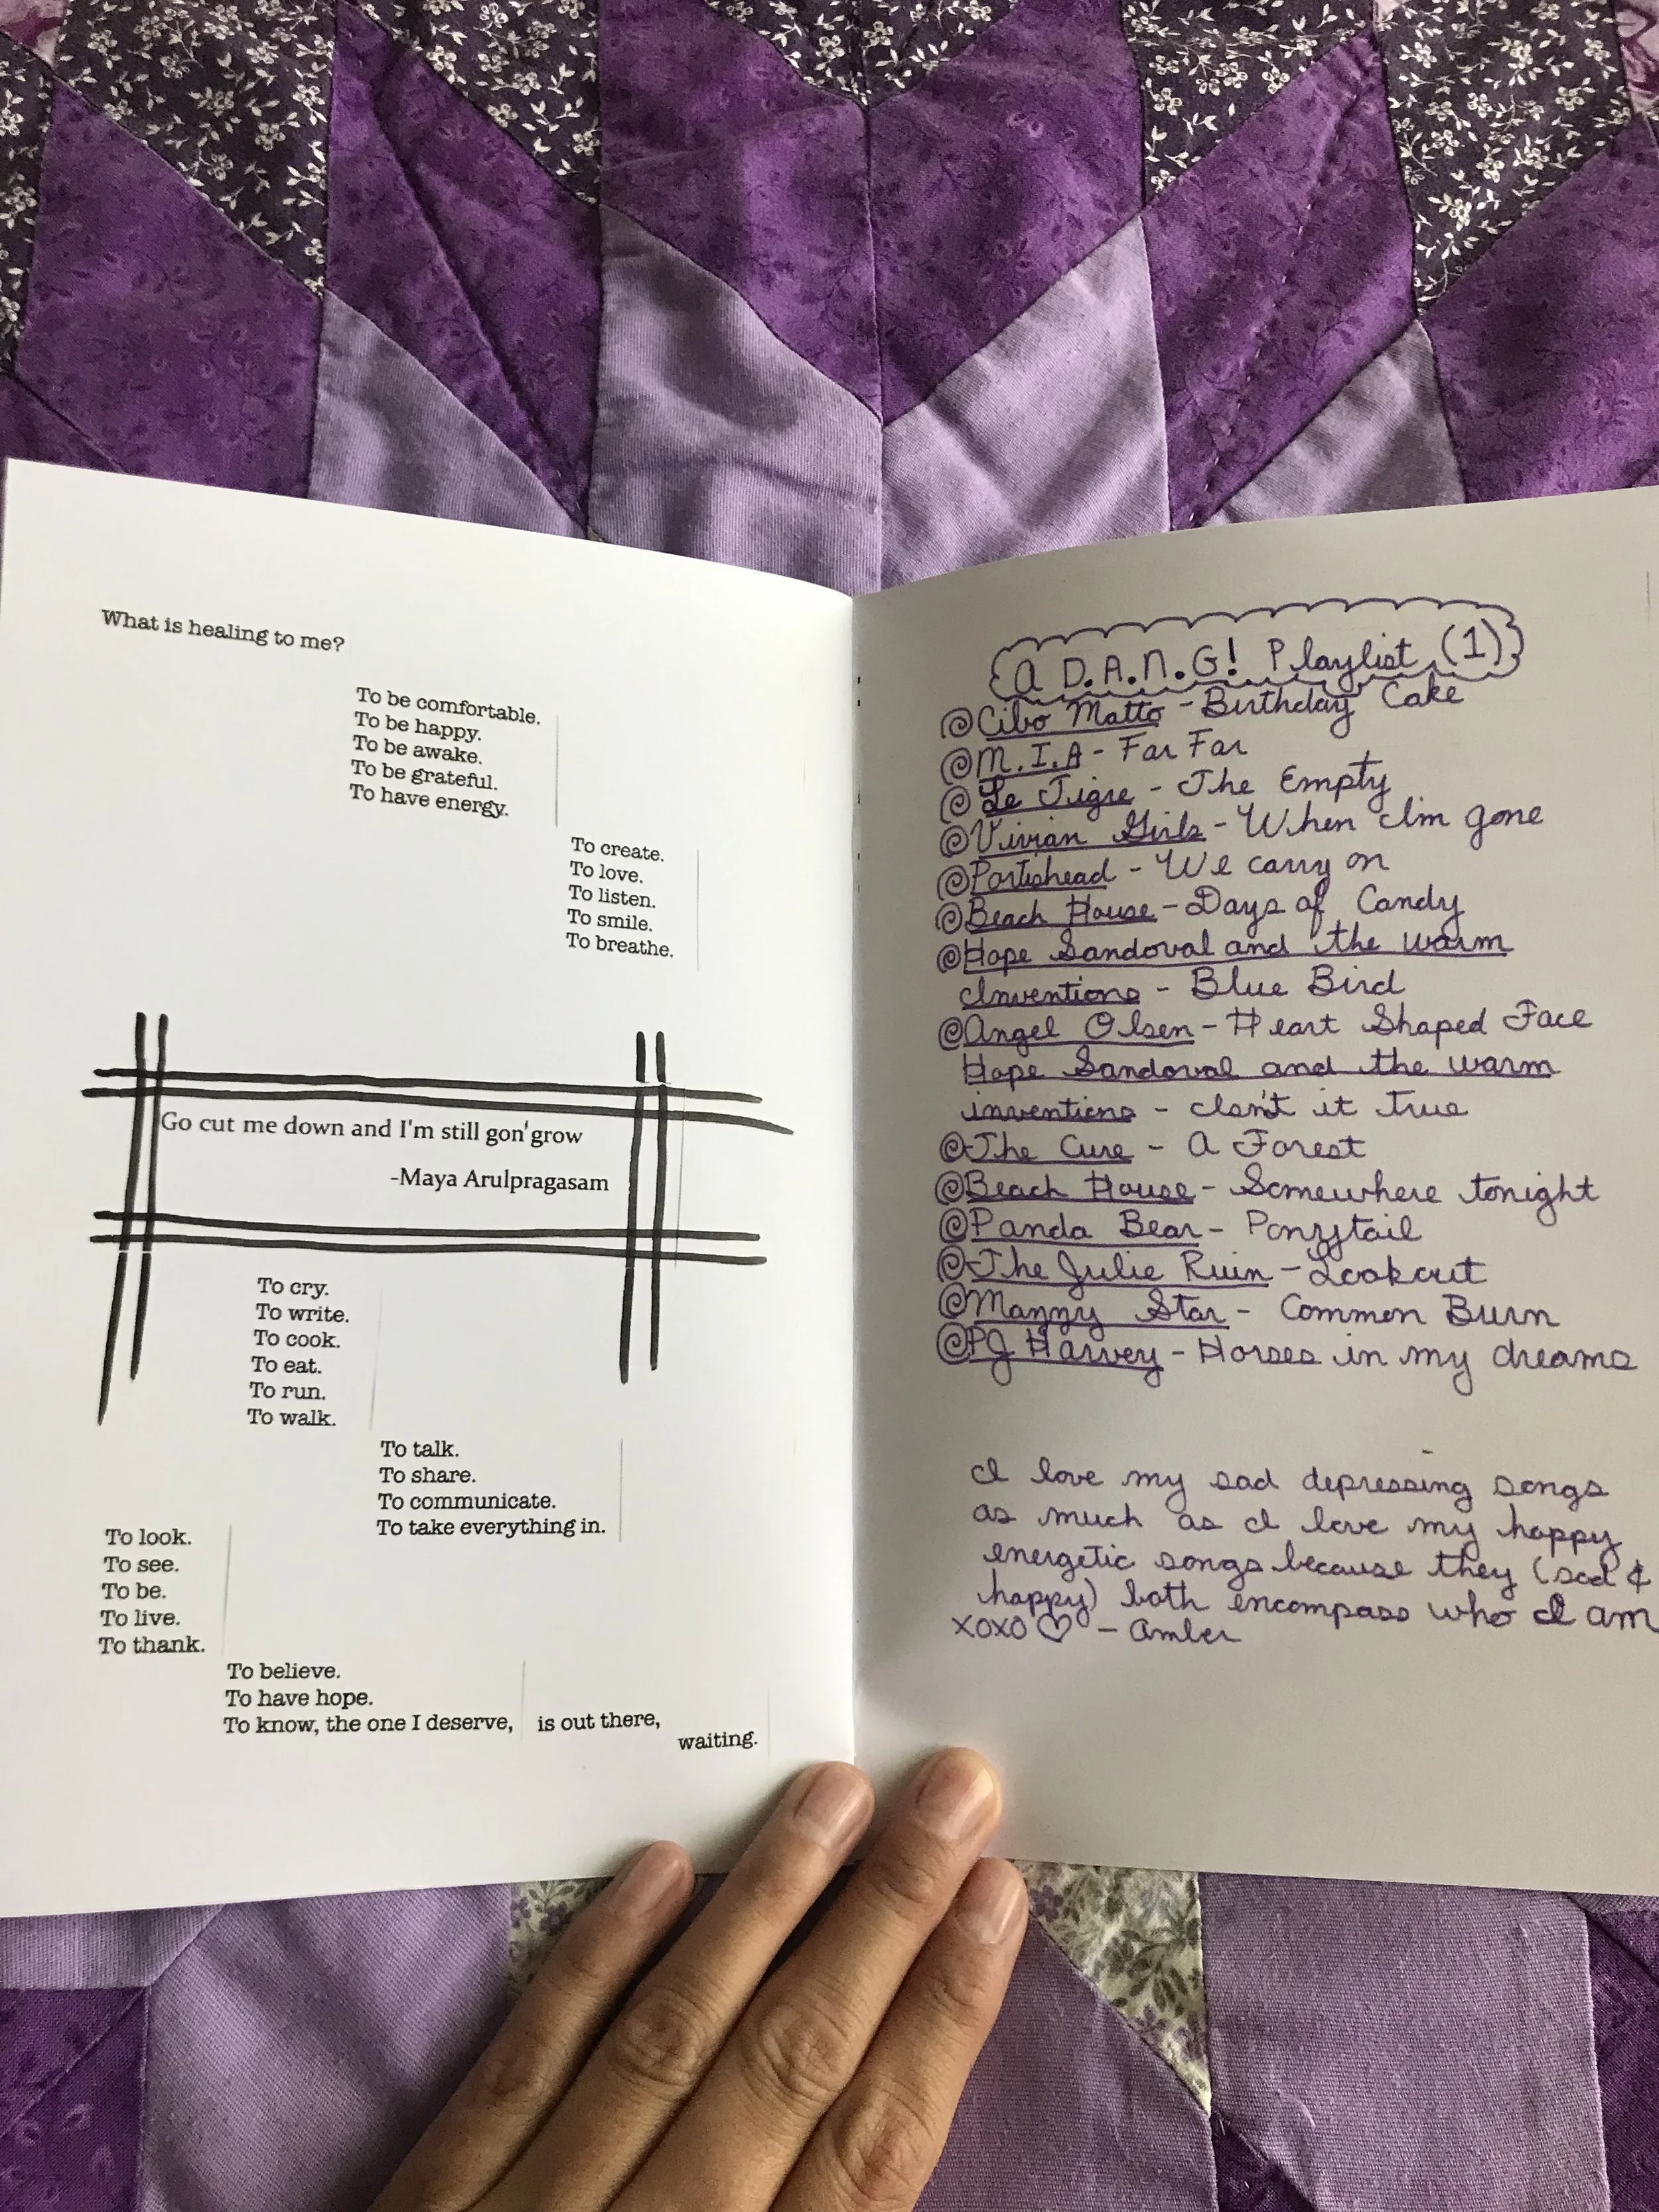 What is healing to me?
To be comfortable.
To be happy.
To be awake.
To be grateful.
To have energy.
To create.
To love.
To listen.
To smile.
To breathe.
Go cut me down and I'm still gon'grow
-Maya Arulpragasam
To cry.
To write.
To cook.
To eat.
To run.
To walk.
To talk.
To share.
To communicate.
To take everything in.
To look.
To see.
To be.
To live.
To thank.
To believe.
To have hope.
To know, the one I deserve, is out there,
waiting.
a D.A.N.G! Playlist (1)
Cibo Matto - Birthday Cake
M.I.A - Far Far
Le Tigre - The Empty
Vivian Girls - When I'm gone
Portishead - We carry on
Beach House - Days of Candy
Hope Sandoval and the warm
Inventions - Blue Bird
Angel Olsen - Heart Shaped Face
Hope Sandoval and the warm
inventions - Isn't it true
The Cure - A Forest
Beach House - Somewhere tonight
Panda Bear - Ponytail
The Julie Ruin - Lookout
Mazzy Star - Common Burn
PJ Harvey - Horses in my dreams
I love my sad depressing songs
as much as I love my happy
energetic songs because they (sad &
happy) both encompass who I am
XOXO ♡ - Amber